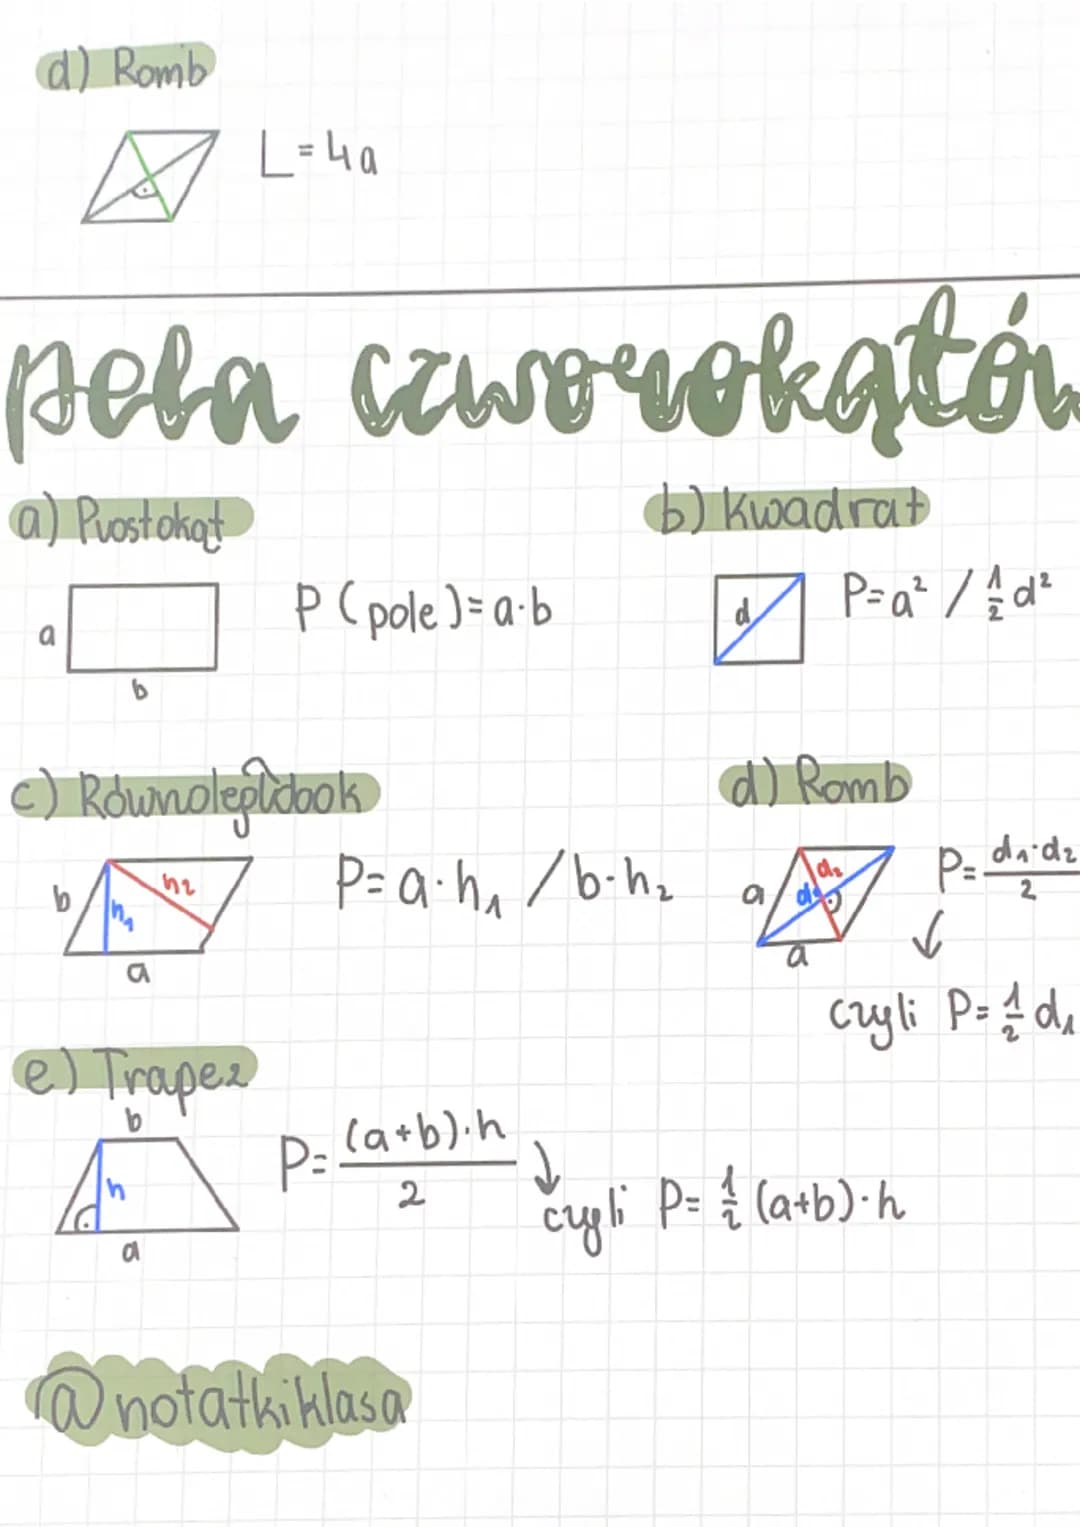 d) Romb
L=4a
pola czworokątów
a) Prostokąt
a
b
P (pole)=a·b
b) Kwadrat
d
P=a² / ½d²
c) Równoległobok
b
h₁
h₂
a
P=a·h₁ / b·h₂
d) Romb
a
d₁
d₂
a
P=d₁·d₂/2
czyli P=½ d₁
e) Trapez
b
h
a
P=(a+b)·h/2
czyli P=½(a+b)·h
@notatkiklasa